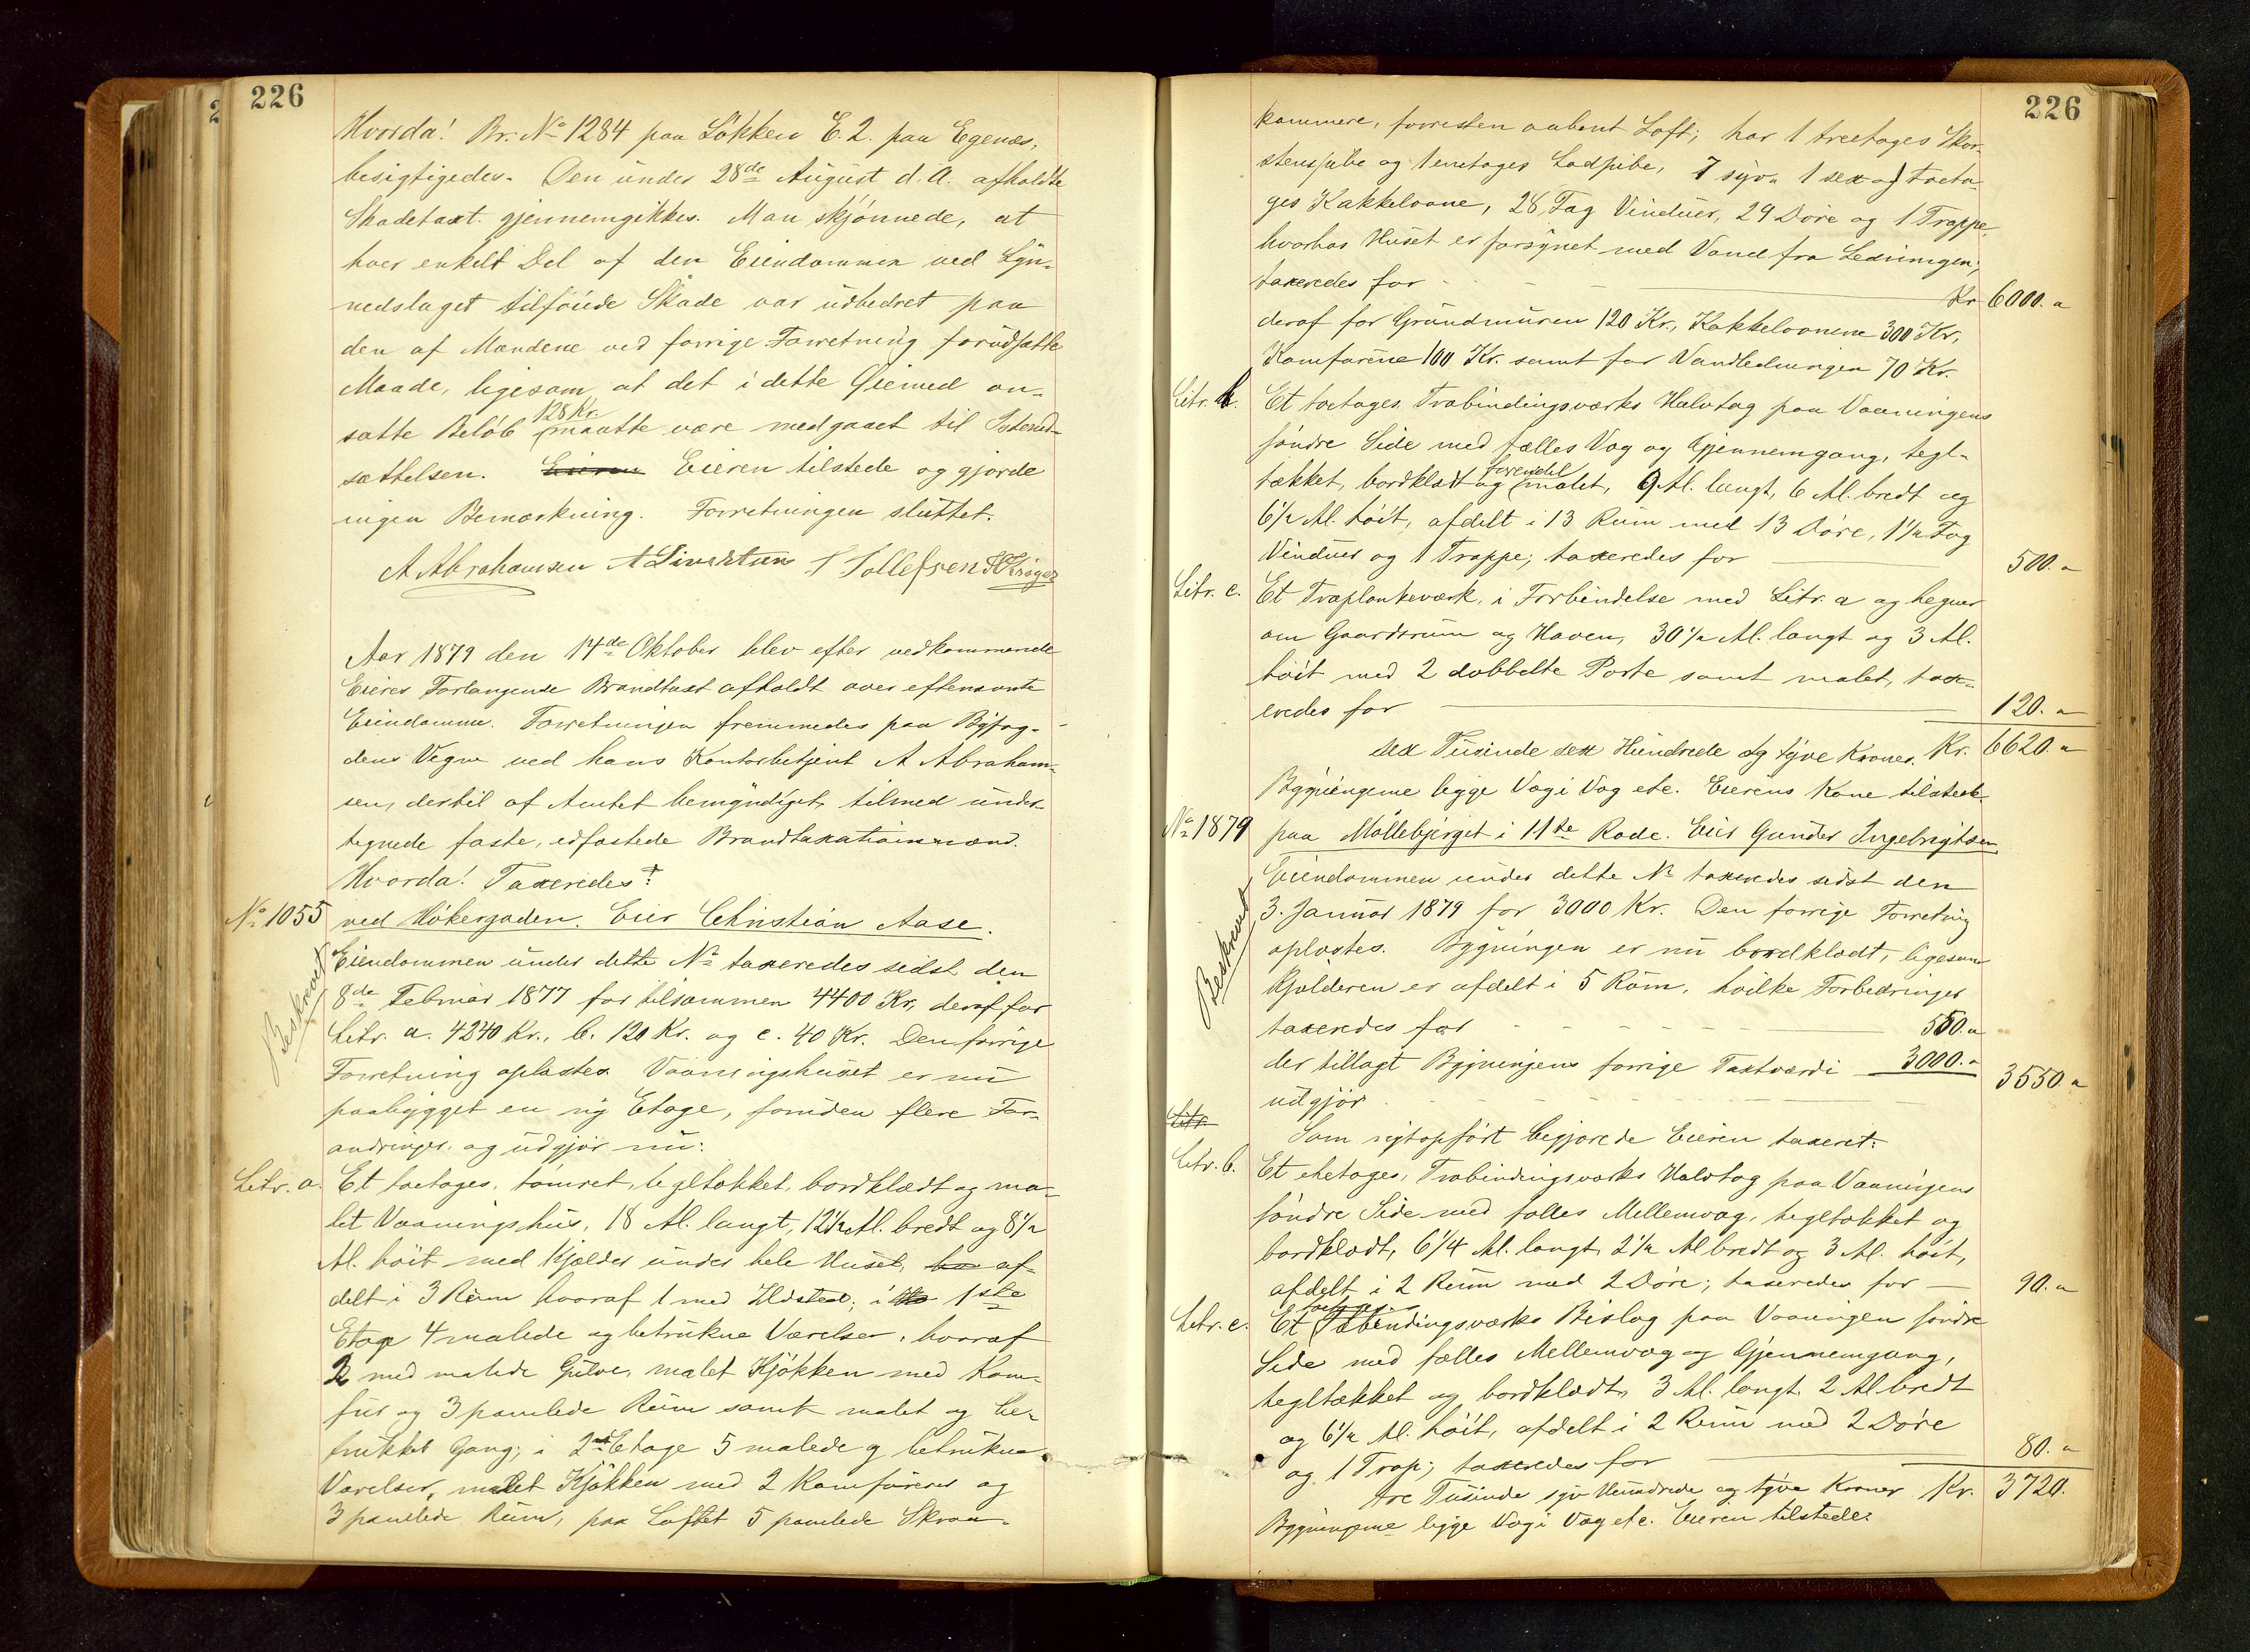 226
Hvorda! Br. No 1284 paa Løkken E. 2. paa Egenæs,
besigtigedes. Den under 28de August d. A. afholdte
Skadetaxt gjennemgikkes. Man skjønnede, at
hver enkelt Del af den Eiendommen ved Lyn-
nedslaget tilføiede Skade var udbedret paa
den af Mændene ved forrige Forretning forudsatte
Maade, ligesom at det i dette Øiemed an-
satte Beløb 128 Kr. maatte være medgaaet til Istand-
sættelsen. Eieren Eieren tilstede og gjorde
ingen Bemærkning. Forretningen sluttet.
A Abrahamsen A Sivertsen T Tollefsen H Krøger
Aar 1879 den 14de Oktober blev efter vedkommende
Eieres Forlangende Brandtaxt afholdt over eftennævnte
Eiendomme. Forretningen fremmedes paa Byfog-
dens Vegne ved hans Kontorbetjent A Abraham-
sen, dertil af Amtet bemyndiget, tilmed under-
tegnede faste, edfæstede Brandtaxationsmænd.
Hvorda! Taxeredes:
No 1055 ved Høkergaden. Eier Christian Aase.
Beskrevet
Eiendommen under dette No taxeredes sidst den
8de Februar 1877 for tilsammen 4400 Kr, deraf for
Litr. a. 4240 Kr., b. 120 Kr. og c. 40 Kr. Den forrige
Forretning oplæstes. Vaaningshuset er nu
paabygget en ny Etage, foruden flere For-
andringer, og udgjør nu:
Litr. a. Et toetages, tømret, tegltækket, bordklædt og ma-
let Vaaningshus, 18 Al. langt, 12 1/2 Al. bredt og 8 1/2
Al. høit med Kjælder under hele Huset, af-
delt i 3 Rum hvoraf 1 med Ildsted; i 1ste
Etage 4 malede og betrukne Værelser, hvoraf
2 med malede Gulve, malet Kjøkken med Kom-
fur og 3 panelede Rum samt malet og be-
trukket Gang; i 2den Etage 5 malede og betrukne
Værelser, malet Kjøkken med 2 Komfurer og
3 panelede Rum, paa Loftet 5 panelede Skraa-
226
kammere, forresten aabent Loft; har 1 treetages Skor-
stenspibe og 1 enetages Lodpibe, 7 syv- 1 sex og toeta-
ges Kakkelovne, 28 Fag Vinduer, 29 Døre og 1 Trappe,
hvorhos Huset er forsynet med Vand fra Ledningen;
taxeredes for Kr 6000. "
deraf for Grundmuren 120 Kr., Kakkelovnene 300 Kr,
Komfurene 100 Kr. samt for Vandledningen 70 Kr.
Litr. b. Et toetages Træbindingsværks Halvtag paa Vaaningens
søndre Side med fælles Væg og Gjennemgang, tegl-
tækket, bordklædt og forendel malet, 9 Al. langt, 6 Al. bredt og
6 1/2 Al. høit, afdelt i 13 Rum med 13 Døre, 1 1/2 Fag
Vinduer og 1 Trappe; taxeredes for 500. "
Litr. c. Et Træplankeværk, i Forbindelse med Litr. a og hegner
om Gaardsrum og Haven, 30 1/2 Al. langt og 3 Al.
høit med 2 dobbelte Porte samt malet, tax-
eredes for 120. "
sex Tusinde sex Hundrede og tyve Kroner. Kr. 6620. "
Bygningerne ligge Væg i Væg etc. Eierens Kone tilstede.
No 1879 paa Møllebjerget i 11te Rode. Eier Gunder Ingebrigtsen
Beskrevet
Eiendommen under dette No taxeredes sidst den
3. Januar 1879 for 3000 Kr. Den forrige Forretning
oplæstes. Bygningen er nu bordklædt, ligesom
Kjælderen er afdelt i 5 Rum, hvilke Forbedringer
taxeredes for 550. "
der tillagt Bygningens forrige Taxtværdi 3000. "
udgjør 3550. "
Litr
Som nyt opført begjærede Eieren taxeret:
Litr. b. Et etetages, Træbindingsværks Halvtag paa Vaaningens
søndre Side med fælles Mellemvæg, tegltækket og
bordklædt, 6 1/4 Al. langt, 2 1/2 Al bredt og 3 Al. høit,
afdelt i 2 Rum med 2 Døre; taxeredes for 90. "
Litr. c. Et toetages Træbindingsværks Bislag paa Vaaningen søndre
Side med fælles Mellemvæg og Gjennemgang,
tegltækket og bordklædt, 3 Al. langt, 2 Al bredt
og 6 1/2 Al. høit, afdelt i 2 Rum med 2 Døre
og 1 Trap; taxeredes for 80. "
tre Tusinde syv Hundrede og tyve Kroner Kr. 3720.
Bygningerne ligge Væg i Væg etc. Eieren tilstede.